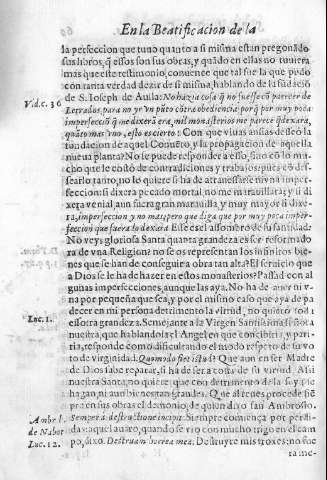 En la Beatificacion de la
la perfeccion que tuuo quanto a si misma estan pregonãdo
sus libros, q̃ essos son sus obras, y quãdo en ellas no tuuiera
mas que este testimonio, conuence que tal fue la que pudo
con tanta verdad dezir de si misma, hablando de la fũdaciõ
Vid. c. 36 de S. Ioseph de Auila: No hazia cosa q̃ no fuesse cõ parecer de
Letrados, para no yr vn pũto cõtra obediencia: por q̃ por muy poca
imperfecciõ q̃ me dixerã era, mil monasterios me parece q̃ dexara,
quãto mas vno, esto es cierto: Con que viuas ansias desseò la
fundacion de aquel Conuẽto, y la propagacion de aquella
nueua planta? No se puede responder a esso, sino cõ lo mu-
cho que le costò de contradiciones y trabajos: pues cõ des-
searlo tanto, no le quiere si ha de atrauessarse vna imper-
feccion: si dixera pecado mortal, no me marauillara; y si di
xera venial, aun fuera gran marauilla, y muy mayor si dixe-
ra, imperfeccion y no mas; pero que diga que por muy poca imper-
feccion que fuera lo dexara? Esse es el assombro de su santidad.
No veys gloriosa Santa quanta grandeza es ser reformado
ra de vna Religion? no se os representan los infinitos bie-
nes que se han de conseguir a obra tan alta? El seruicio que
a Dios se le ha de hazer en estos monasterios? Passad con al
gunas imperfecciones, aunque las aya. No ha de auer ni v-
na por pequeña que sea, y por el mismo caso que aya de pa
decer en mi persona detrimento la virtud, no quiero toda
Luc. 1. essotra grandeza. Semejante a la Virgen Santissima señora
nuestra, que hablandola el Angel en que concibiria, y pari-
ria, responde como dificultando el modo respeto de su vo
to de virginidad: Quomodo fiet istud? Que aun en ser Madre
de Dios sabe reparar, si ha de ser a costa de su virtud. Assi
nuestra Santa, no quiere que con detrimento de la suya se le
hagan ni aun bienes tan grandes. Que al reues procede siẽ
pre en sus obras el demonio, de quien dixo san Ambrosio.
Ambr. l. Semper à destructione incipit. Siempre comiença por perdi-
de Nabot das: aquel auaro, quando se vio con mucho trigo en el cam
Luc. 12. po, dixo. Destruam horrea mea. Destruyrè mis troxes: no fue
ra me-